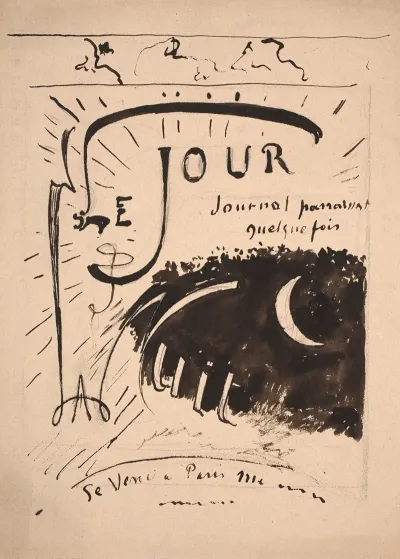 LE JOUR
Journal paraissant
quelque fois
LA NUIT
Se Vend a Paris